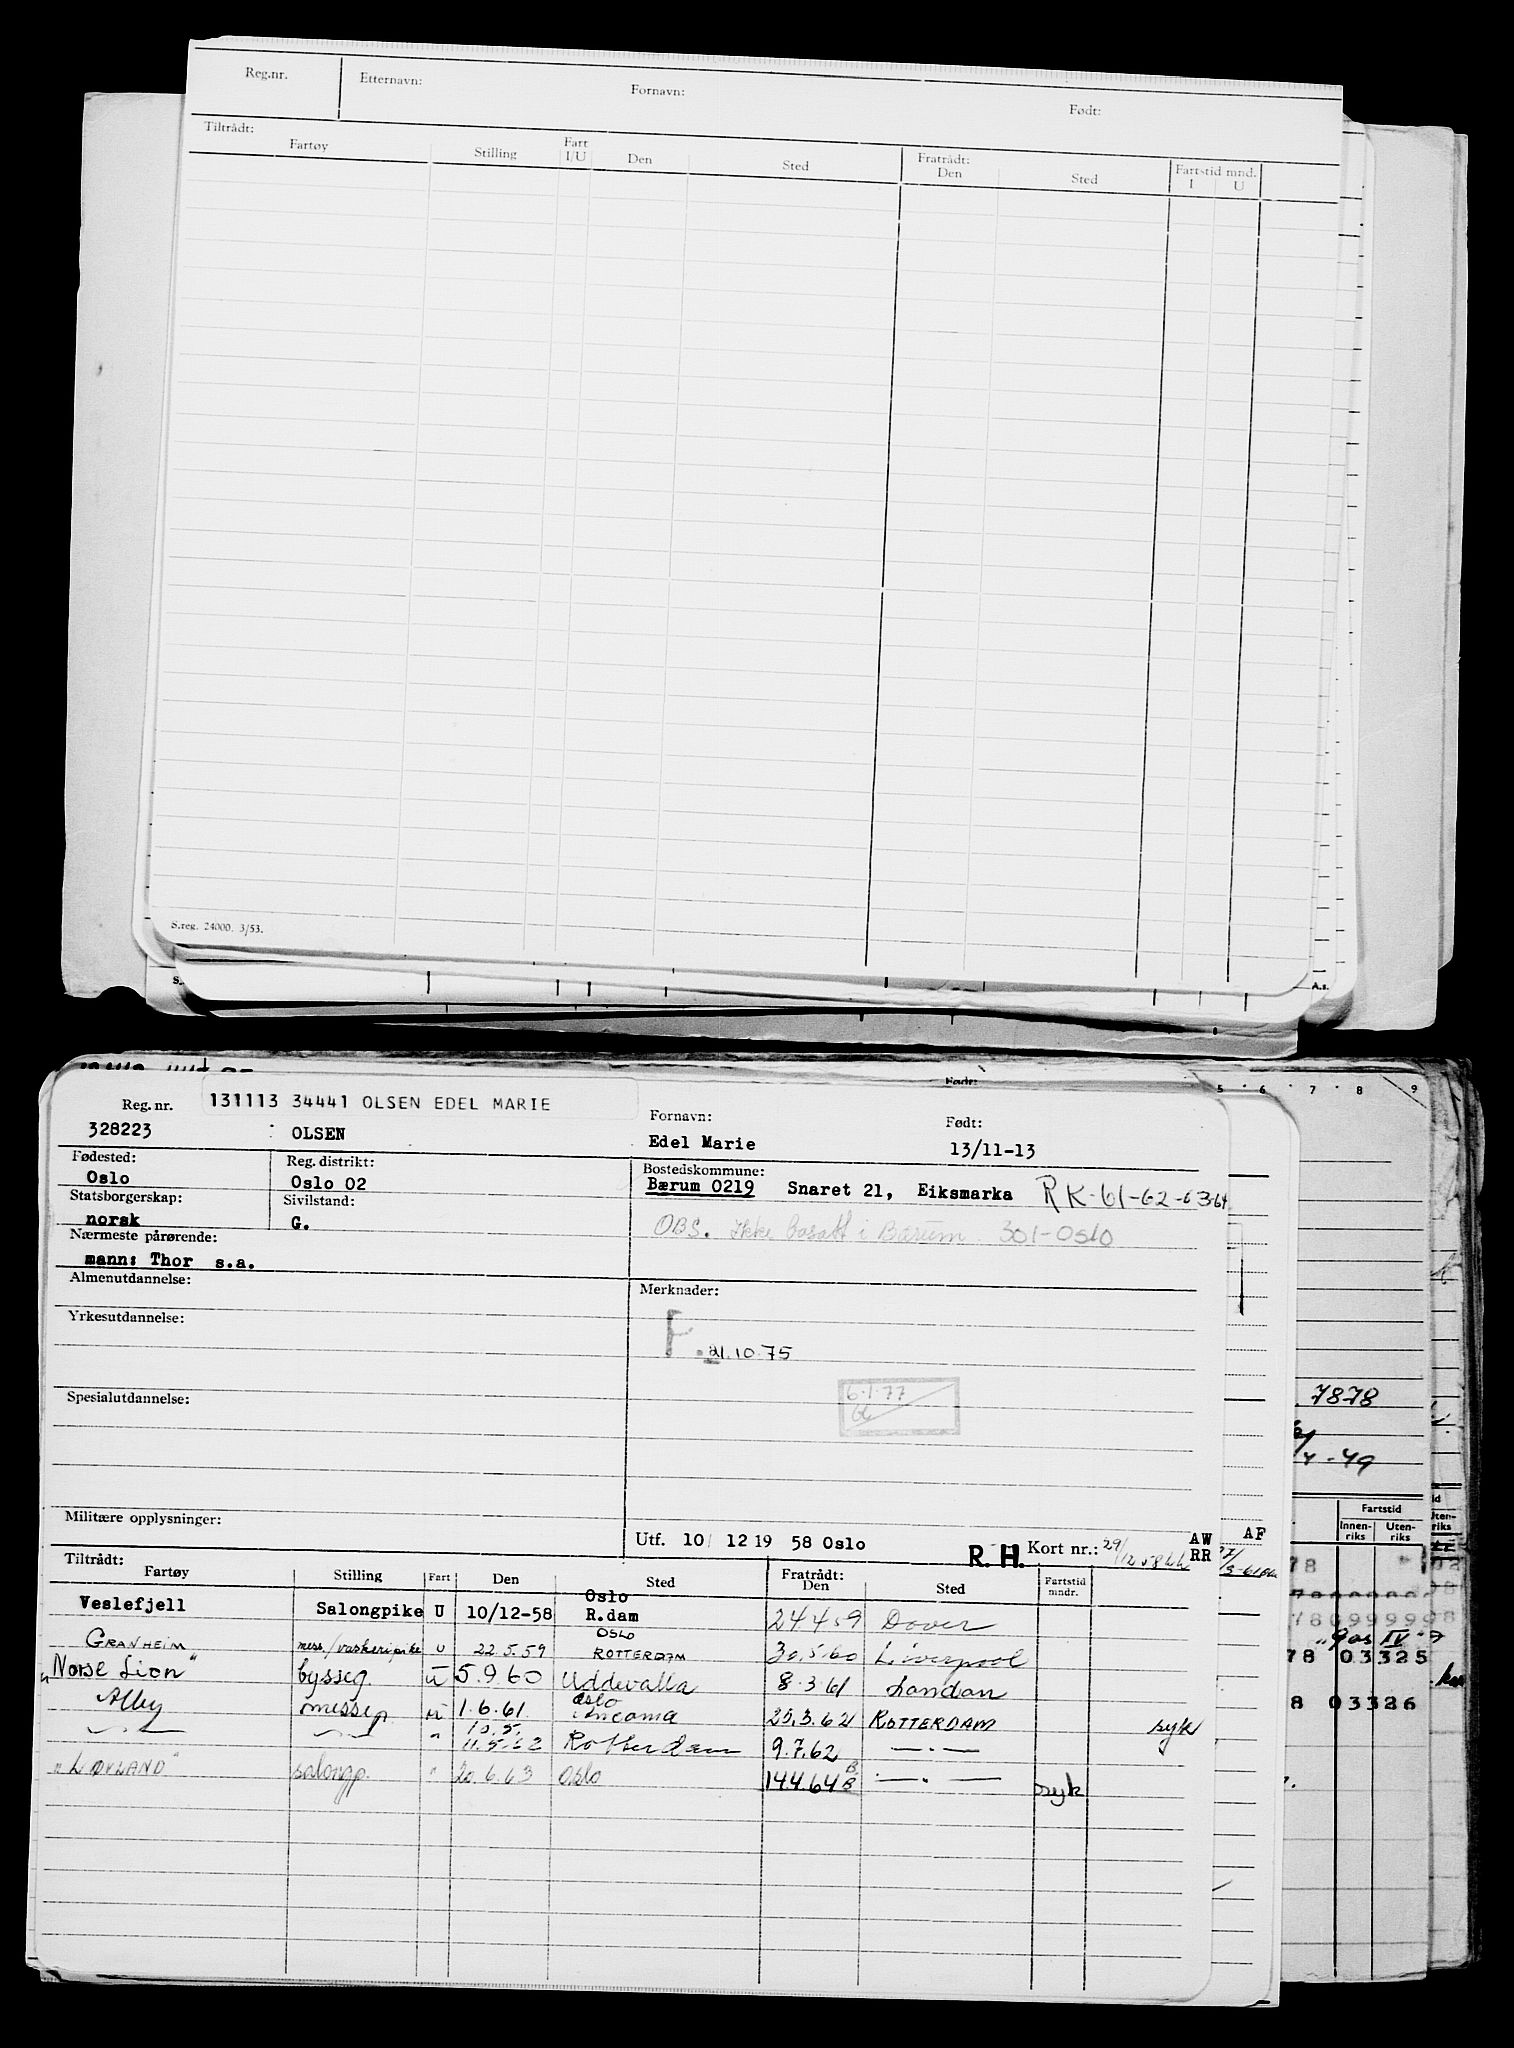 Reg.nr. Etternavn: Fornavn: Født:
Tiltrådt: Fratrådt: Fartstid mnd.
Fartøy Stilling Fart I/U Den Sted Den Sted I U
S.reg. 24000. 3/53.
A.s.
Født:
5 6 7 8 9
131113 34441 OLSEN EDEL MARIE
Reg. nr. Fornavn: Født:
328223 OLSEN Edel Marie 13/11-13
Fødested: Reg. distrikt: Bostedskommune:
Oslo Oslo 02 Bærum 0219 Snaret 21, Eiksmarka RK-61-62-63-64
Statsborgerskap: Sivilstand:
norsk G. OBS. Ikke bosatt i Bærum 301-Oslo
Nærmeste pårørende:
mann: Thor s.a.
Almenutdannelse: Merknader:
Yrkesutdannelse:
F. 21.10.75
6.1.77
Spesialutdannelse:
7878
4-49
Militære opplysninger:
Utf. 10/12 19 58 Oslo R.H. Kort nr.: 29/12 58 AW RR AF
Fartstid
Innenriks Utenriks
Tiltrådt: Fratrådt: Fartstid mndr.
Fartøy Stilling Fart Den Sted Den Sted
Veslefjell Salongpike U 10/12-58 Oslo R.dam 24.4.59 Dover
GRANHEIM mess./vaskeripike U 22.5.59 OSLO ROTTERDAM 30.5.60 Liverpool
"Norse Lion" bysseg. U 5.9.60 Uddevalla 8.3.61 London
Alby messep. U 1.6.61 Oslo 20.3.62 ROTTERDAM syk
—"— —"— " 10.5. 11.5.62 Rotterdam 9.7.62 —"—
"LØVLAND" salongp. " 20.6.63 Oslo 14.4.64 B B —"— syk
78
78 099998
78 03325
8 03326